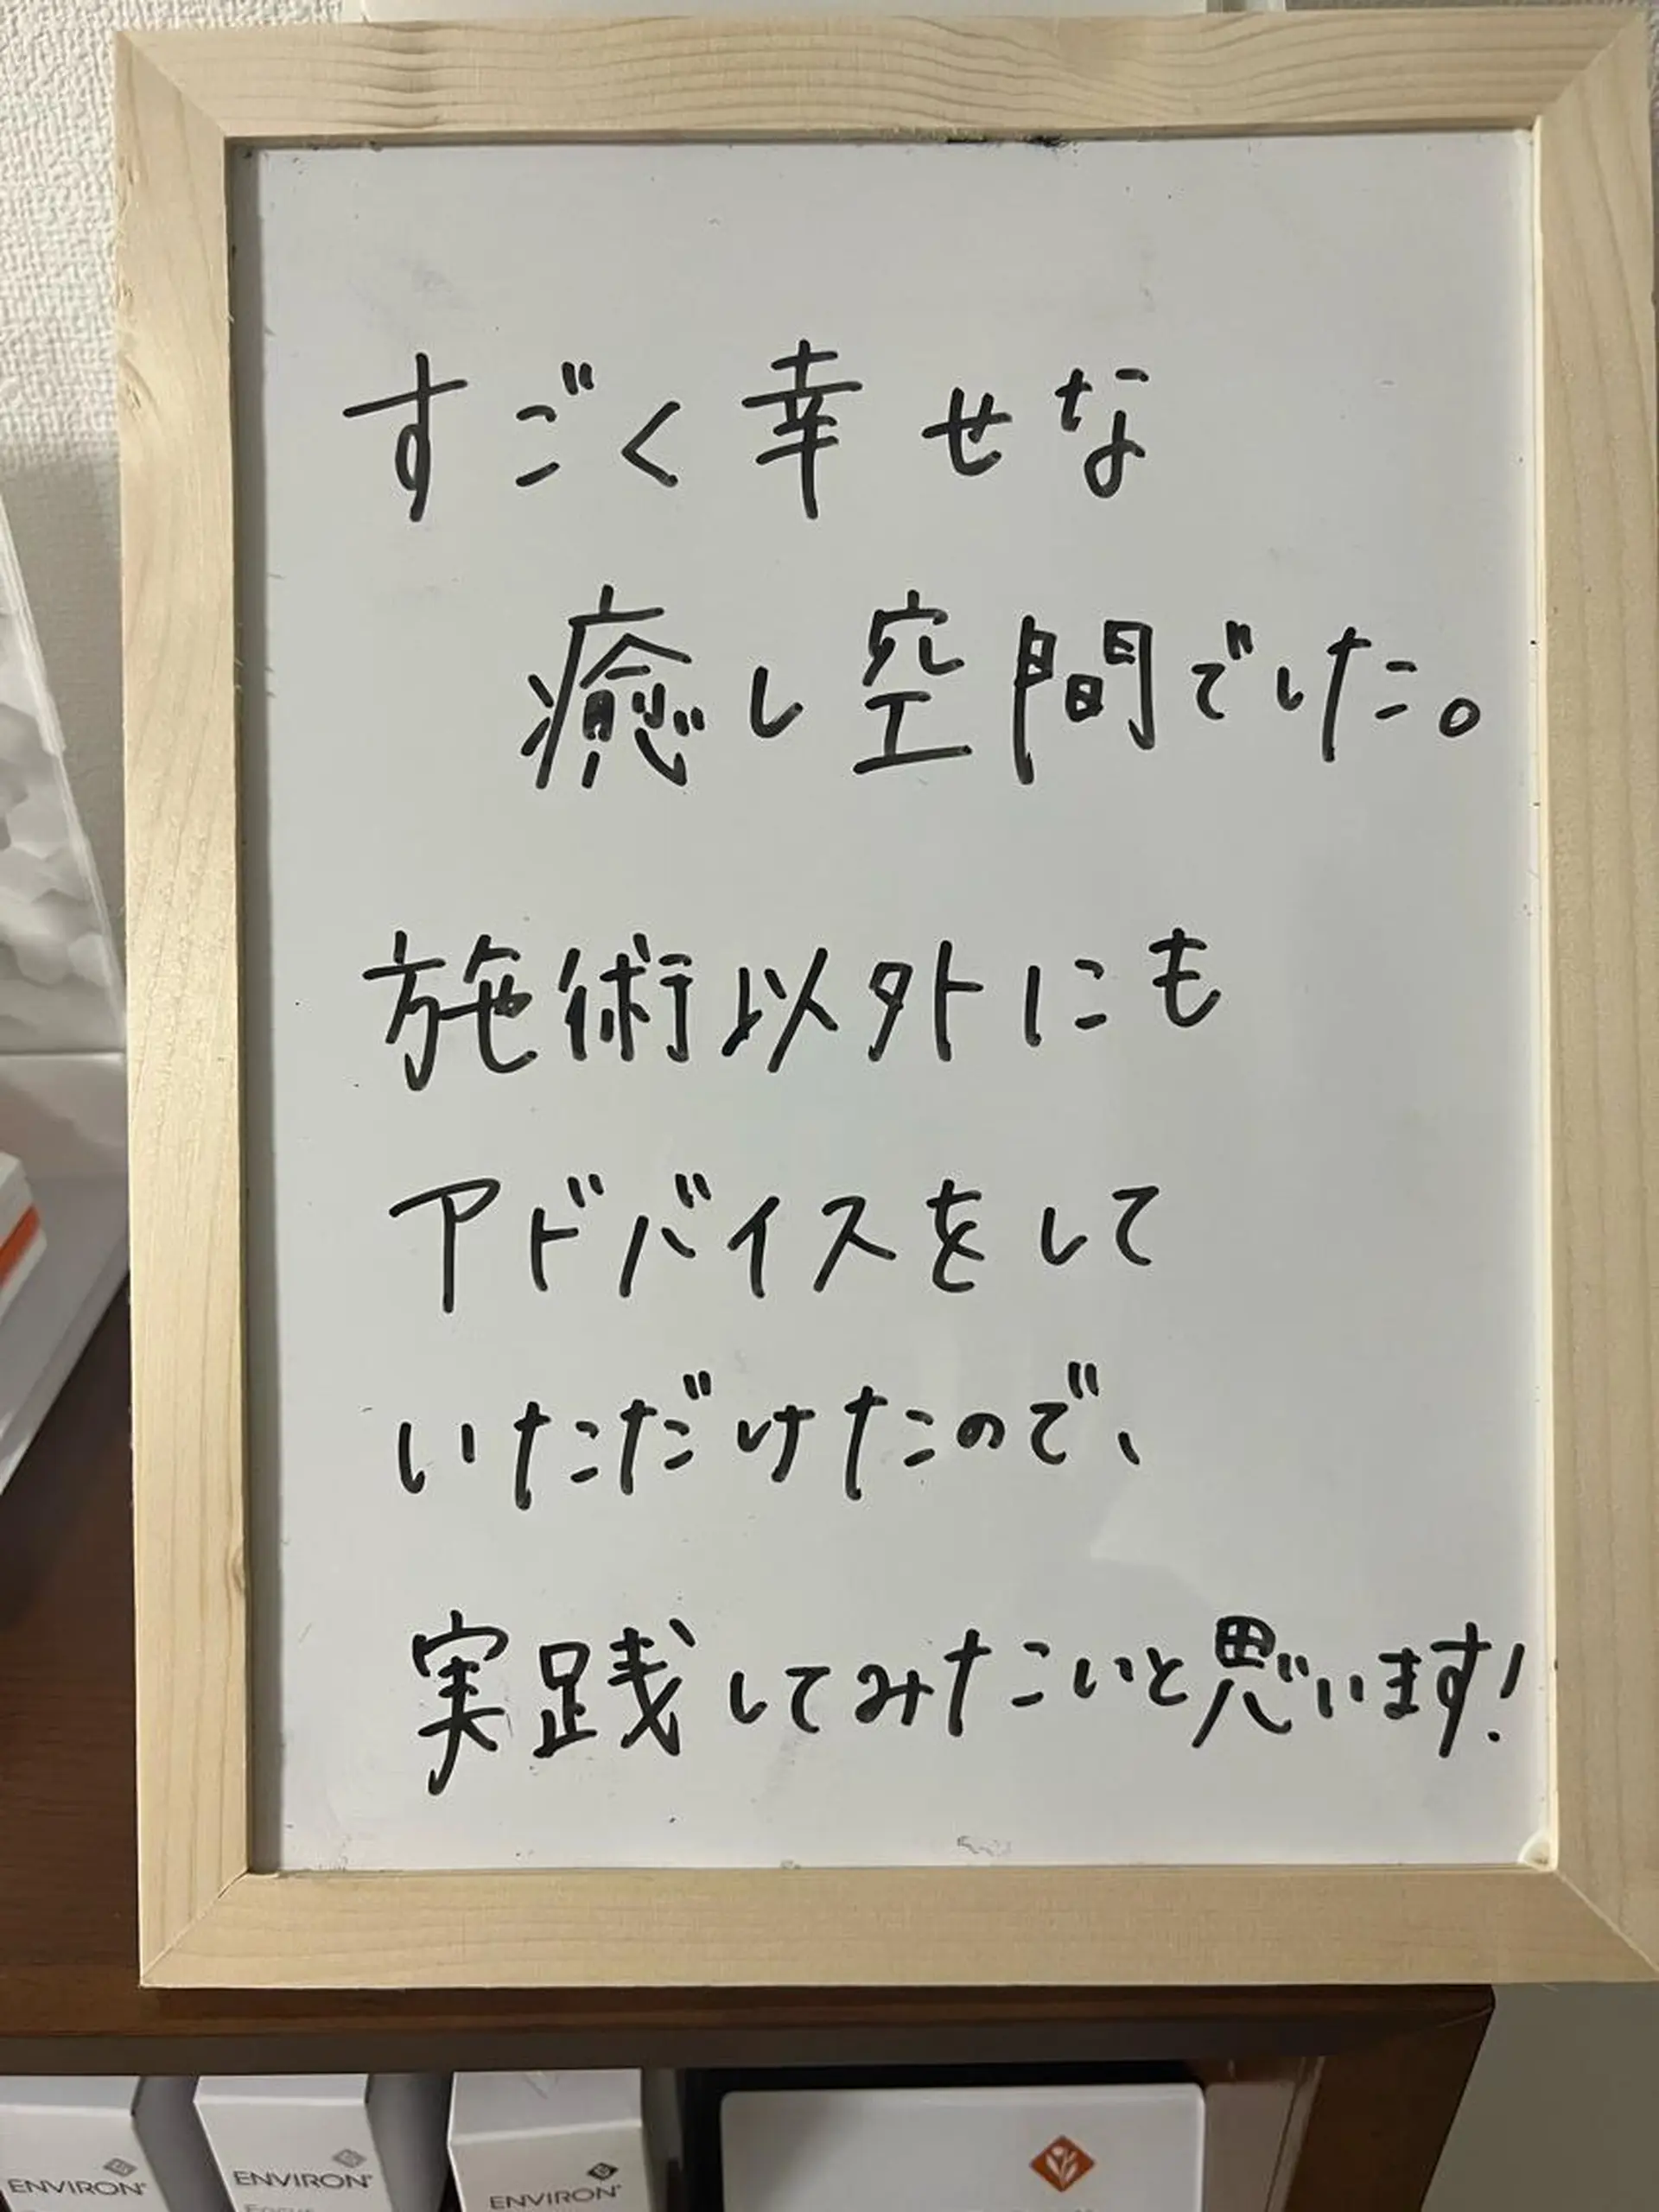 すごく幸せな
癒し空間でした。
施術以外にも
アドバイスをして
いただけたので、
実践してみたいと思います!
ENVIRON®
ENVIRON®
ENVIRON®
Focus